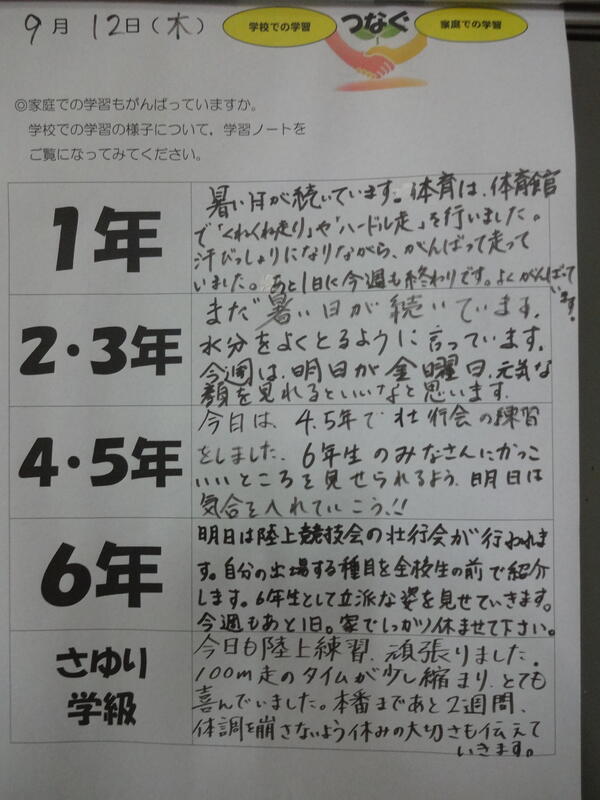 9月 12日（木）
学校での学習 つなぐ 家庭での学習
◎家庭での学習もがんばっていますか。
学校での学習の様子について，学習ノートを
ご覧になってみてください。
1年
暑い日が続いています。体育は、体育館
で「くねくね走り」や「ハードル走」を行いました。
汗びっしょりになりながら、がんばって走って
いました。あと1日に今週も終わりです。よくがんばって
います。
2・3年
まだ暑い日が続いています。
水分をよくとるように言っています。
今週は、明日が金曜日、元気な
顔を見れるといいなと思います。
4・5年
今日は、4.5年で壮行会の練習
をしました。6年生のみなさんにかっこ
いいところを見せられるよう、明日は
気合を入れていこう!!
6年
明日は陸上競技会の壮行会が行われま
す。自分の出場する種目を全校生の前で紹介
します。6年生として立派な姿を見せていきます。
今週もあと1日。家でしっかり休ませて下さい。
さゆり
学級
今日も陸上練習、頑張りました。
100m走のタイムが少し縮まり、とても
喜んでいました。本番まであと2週間、
体調を崩さないよう休みの大切さも伝えて
いきます。